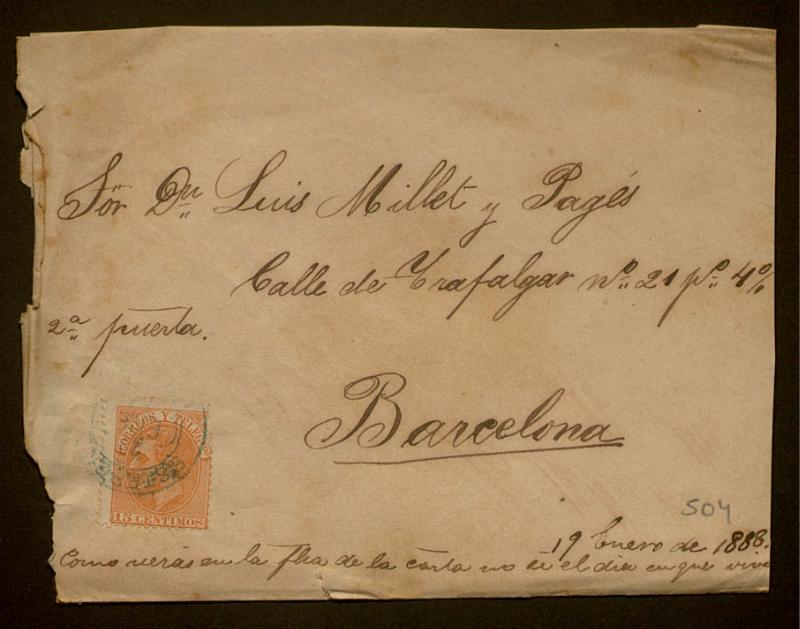 Sör Dn Luis Millet y Pagés
Calle de Trafalgar nº 21 pº 4º
2ª puerta.
Barcelona
CORREOS Y TELEG
15 CENTIMOS
504
19 Enero de 1888.
Como verás en la fha de la carta no se el dia en que vivo